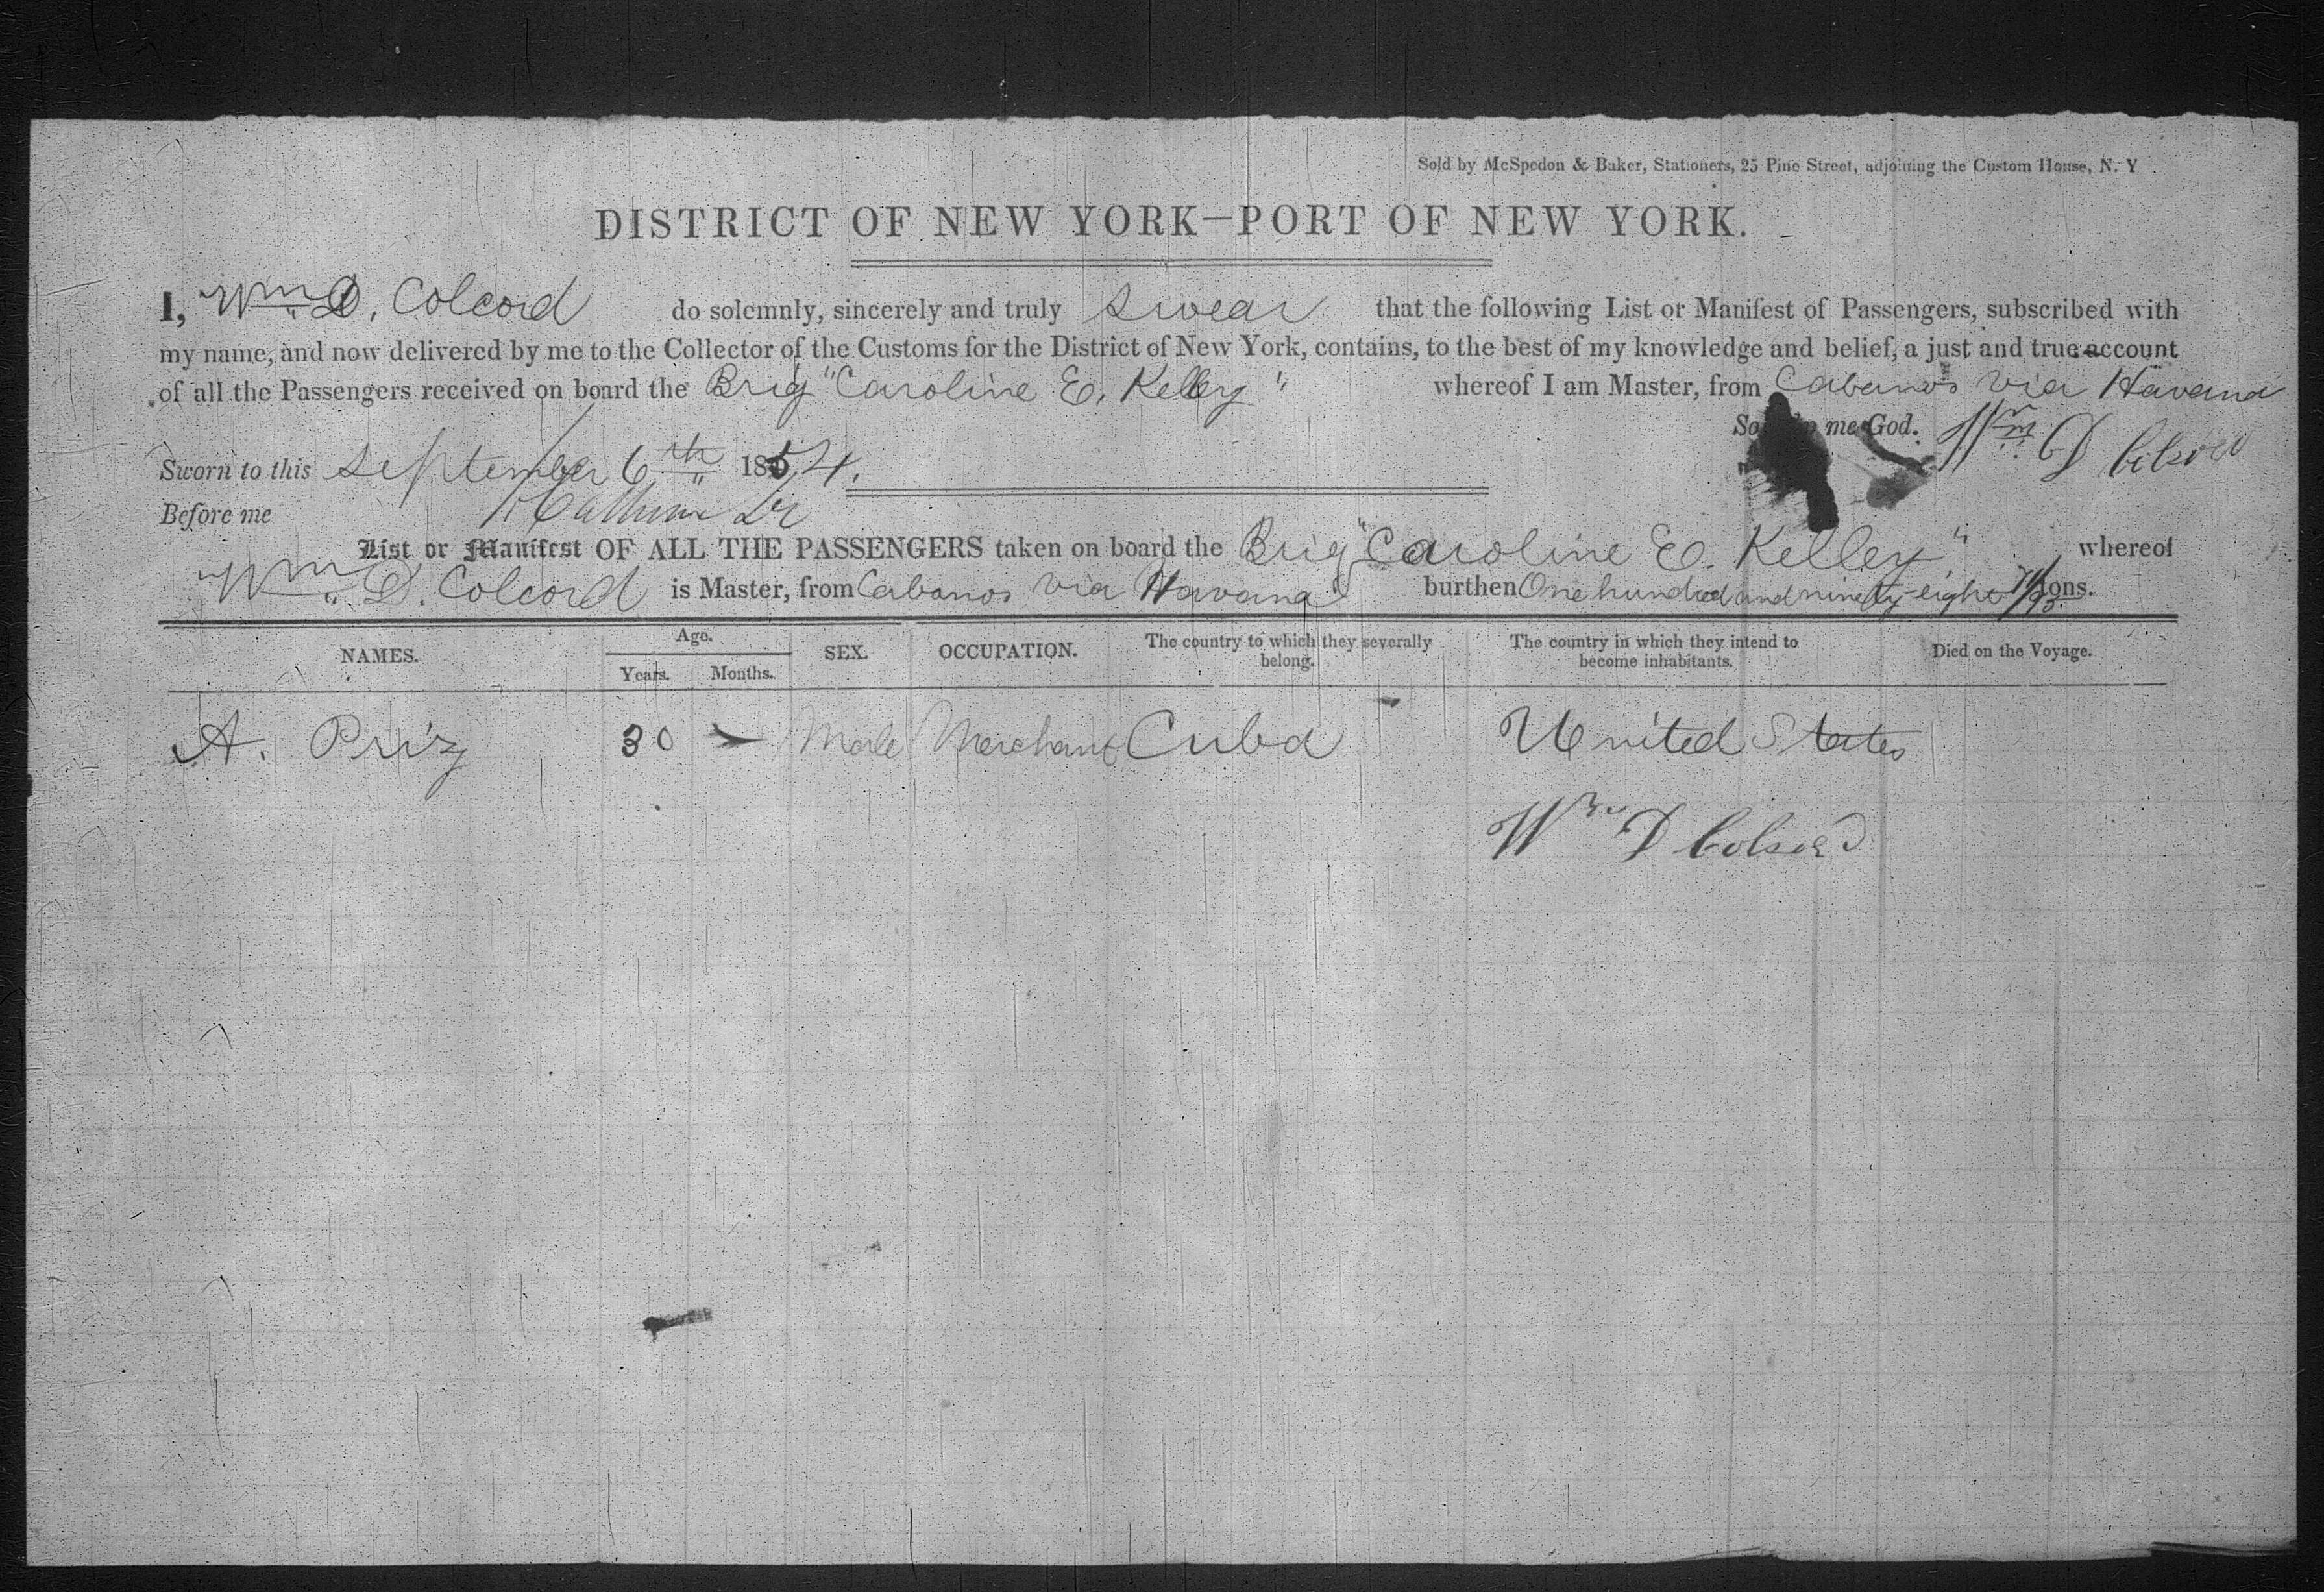 Sold by McSpedon & Baker, Stationers, 25 Pine Street, adjoining the Custom House, N. Y
DISTRICT OF NEW YORK—PORT OF NEW YORK.
I, Wm D. Colcord do solemnly, sincerely and truly swear that the following List or Manifest of Passengers, subscribed with
my name, and now delivered by me to the Collector of the Customs for the District of New York, contains, to the best of my knowledge and belief, a just and true account
of all the Passengers received on board the Brig "Caroline E. Kelley" whereof I am Master, from Cabanos via Havana
So help me God. Wm D Colcord
Sworn to this September 6th 1854.
Before me
List or Manifest OF ALL THE PASSENGERS taken on board the Brig "Caroline E. Kelley" whereof
Wm D. Colcord is Master, from Cabanos via Havana burthen One hundred and ninety-eight tons.
NAMES. Age. Years. Months. SEX. OCCUPATION. The country to which they severally belong. The country in which they intend to become inhabitants. Died on the Voyage.
A. Priz 30 Male Merchant Cuba United States
Wm D Colcord